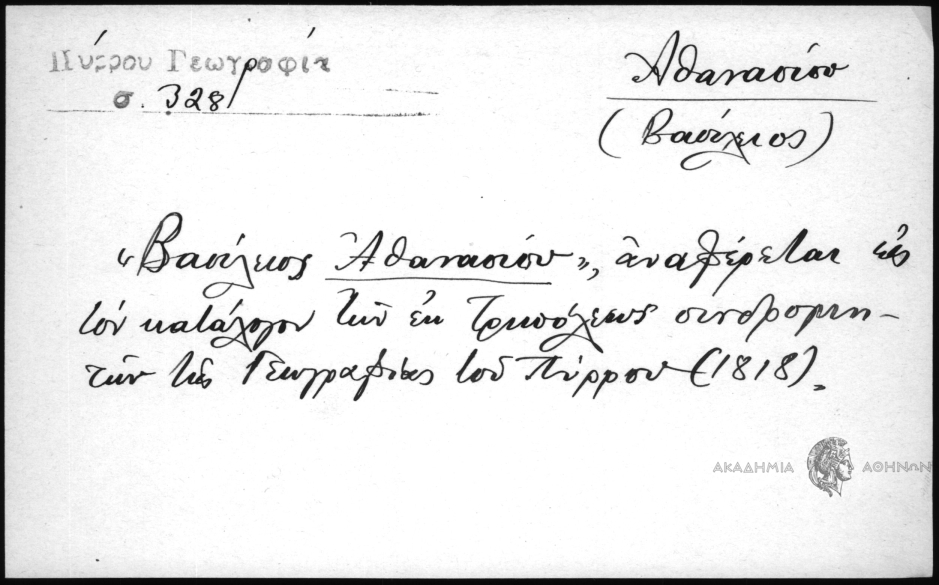 Πύρρου Γεωγραφία
σ. 328
Ἀθανασίου
(Βασίλειος)
"Βασίλειος Ἀθανασίου", ἀναφέρεται εἰς
τὸν κατάλογον τῶν ἐκ Τριπόλεως συνδρομη-
τῶν τῆς Γεωγραφίας τοῦ Πύρρου (1818).
ΑΚΑΔΗΜΙΑ ΑΘΗΝΩΝ